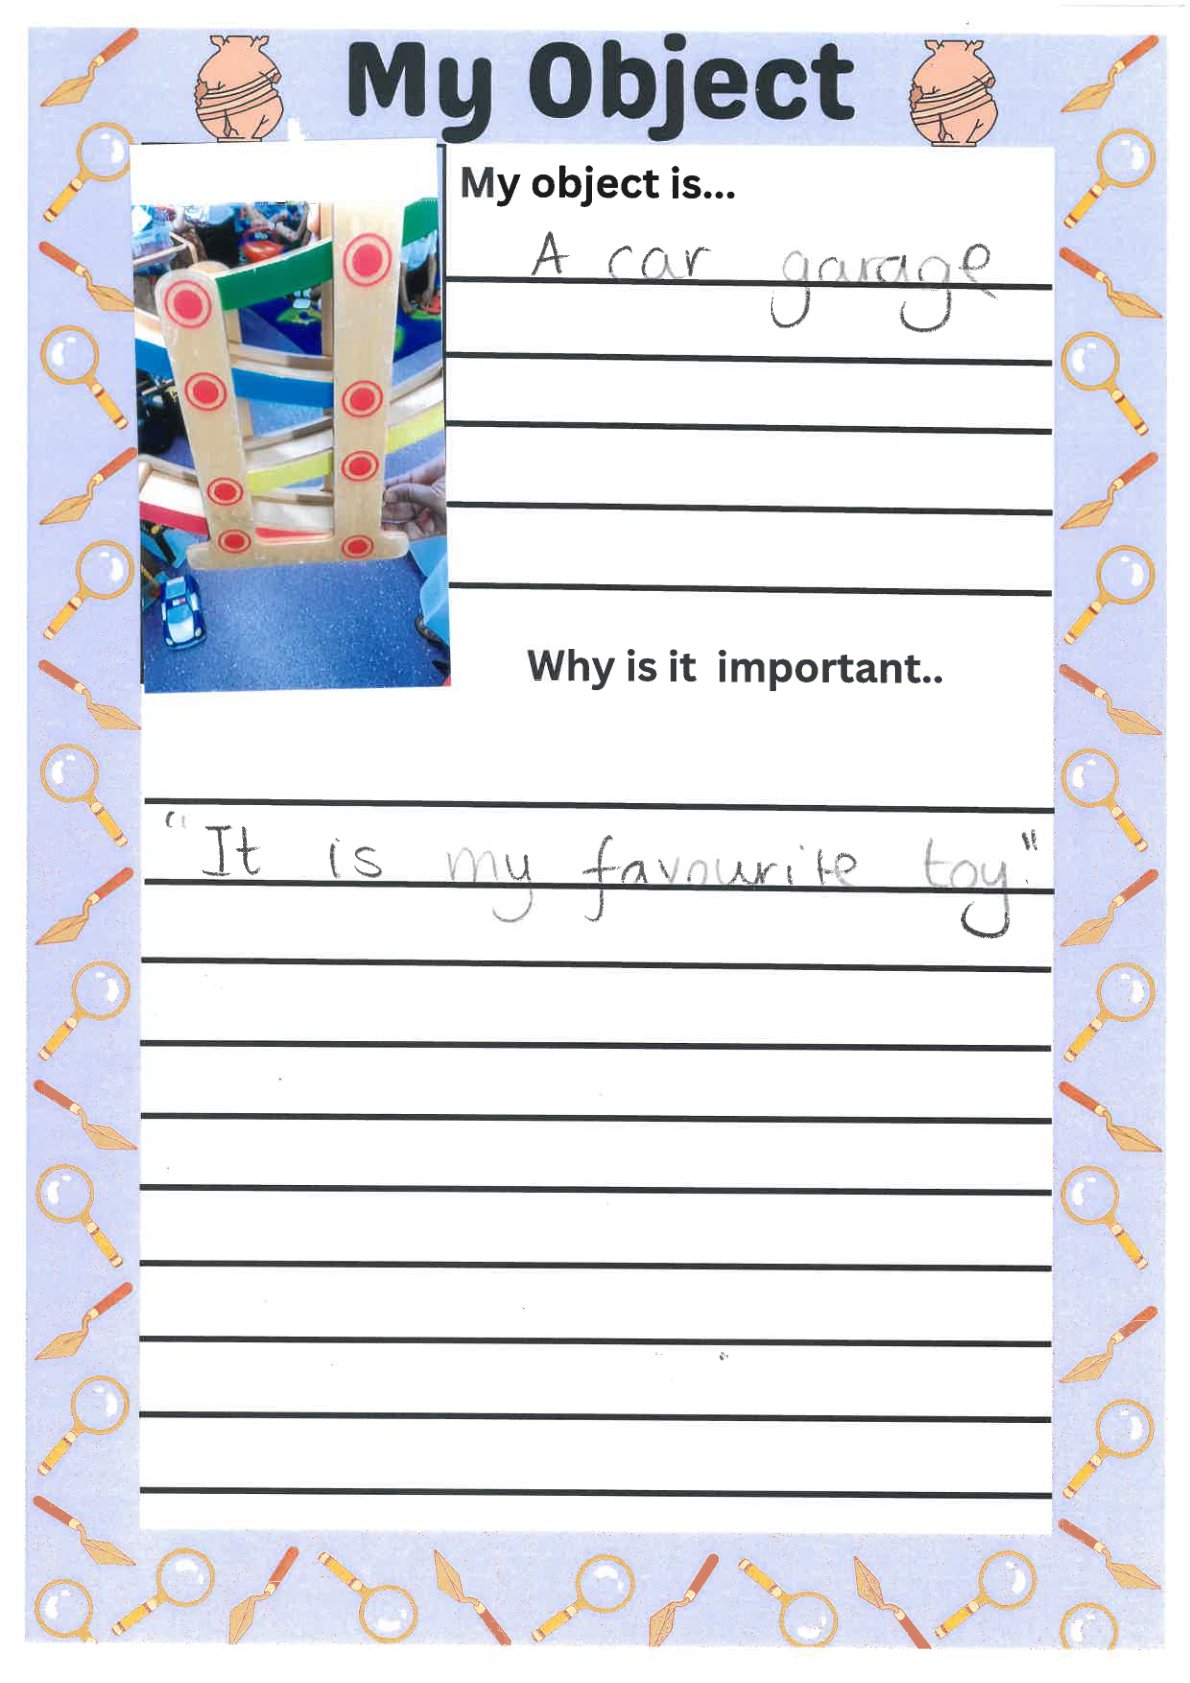 My Object
My object is...
A car garage
Why is it important..
"It is my favourite toy."